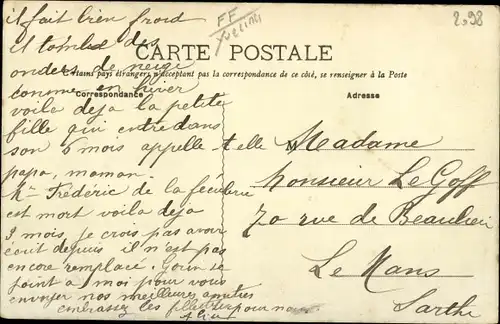 il fait bien froid
il tombe des
ondées de neige
comme en hiver
voila deja la petite
fille qui entre dans
son 6 mois appelle-t elle
papa, maman.
Mr Frédéric de la féculerie
est mort voila deja
3 mois, je crois pas avoir
écrit depuis il n'est pas
encore remplacé. se
joint a moi pour vous
envoyer nos meilleures amitiés
embrassez les pour nous
FF
Yvelines
2,98
CARTE POSTALE
tains pays étrangers n'acceptant pas la correspondance de ce côté, se renseigner à la Poste
Correspondance
Adresse
M
Madame
Monsieur Le Goff
70 rue de Beaulieu
Le Mans
Sarthe